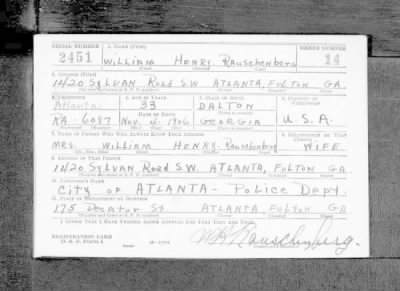 SERIAL NUMBER 1. NAME (Print) ORDER NUMBER
2451 WILLIAM HENRY RAUSCHENBERG 14
2. ADDRESS (Print)
1420 SYLVAN ROAD S.W. ATLANTA, FULTON GA.
3. TELEPHONE 4. AGE IN YEARS 5. PLACE OF BIRTH 6. COUNTRY OF CITIZENSHIP
Atlanta 33 DALTON
DATE OF BIRTH
RA-6087 Nov. 4, 1906 GEORGIA U.S.A.
7. NAME OF PERSON WHO WILL ALWAYS KNOW YOUR ADDRESS 8. RELATIONSHIP OF THAT PERSON
MRS. WILLIAM HENRY RAUSCHENBERG WIFE
9. ADDRESS OF THAT PERSON
1420 SYLVAN ROAD S.W. ATLANTA, FULTON GA.
10. EMPLOYER'S NAME
CITY OF ATLANTA - POLICE DEPT.
11. PLACE OF EMPLOYMENT OR BUSINESS
175 DECATUR ST ATLANTA, FULTON GA
I AFFIRM THAT I HAVE VERIFIED ABOVE ANSWERS AND THAT THEY ARE TRUE.
REGISTRATION CARD
D. S. S. Form 1 (over)
W H Rauschenberg.